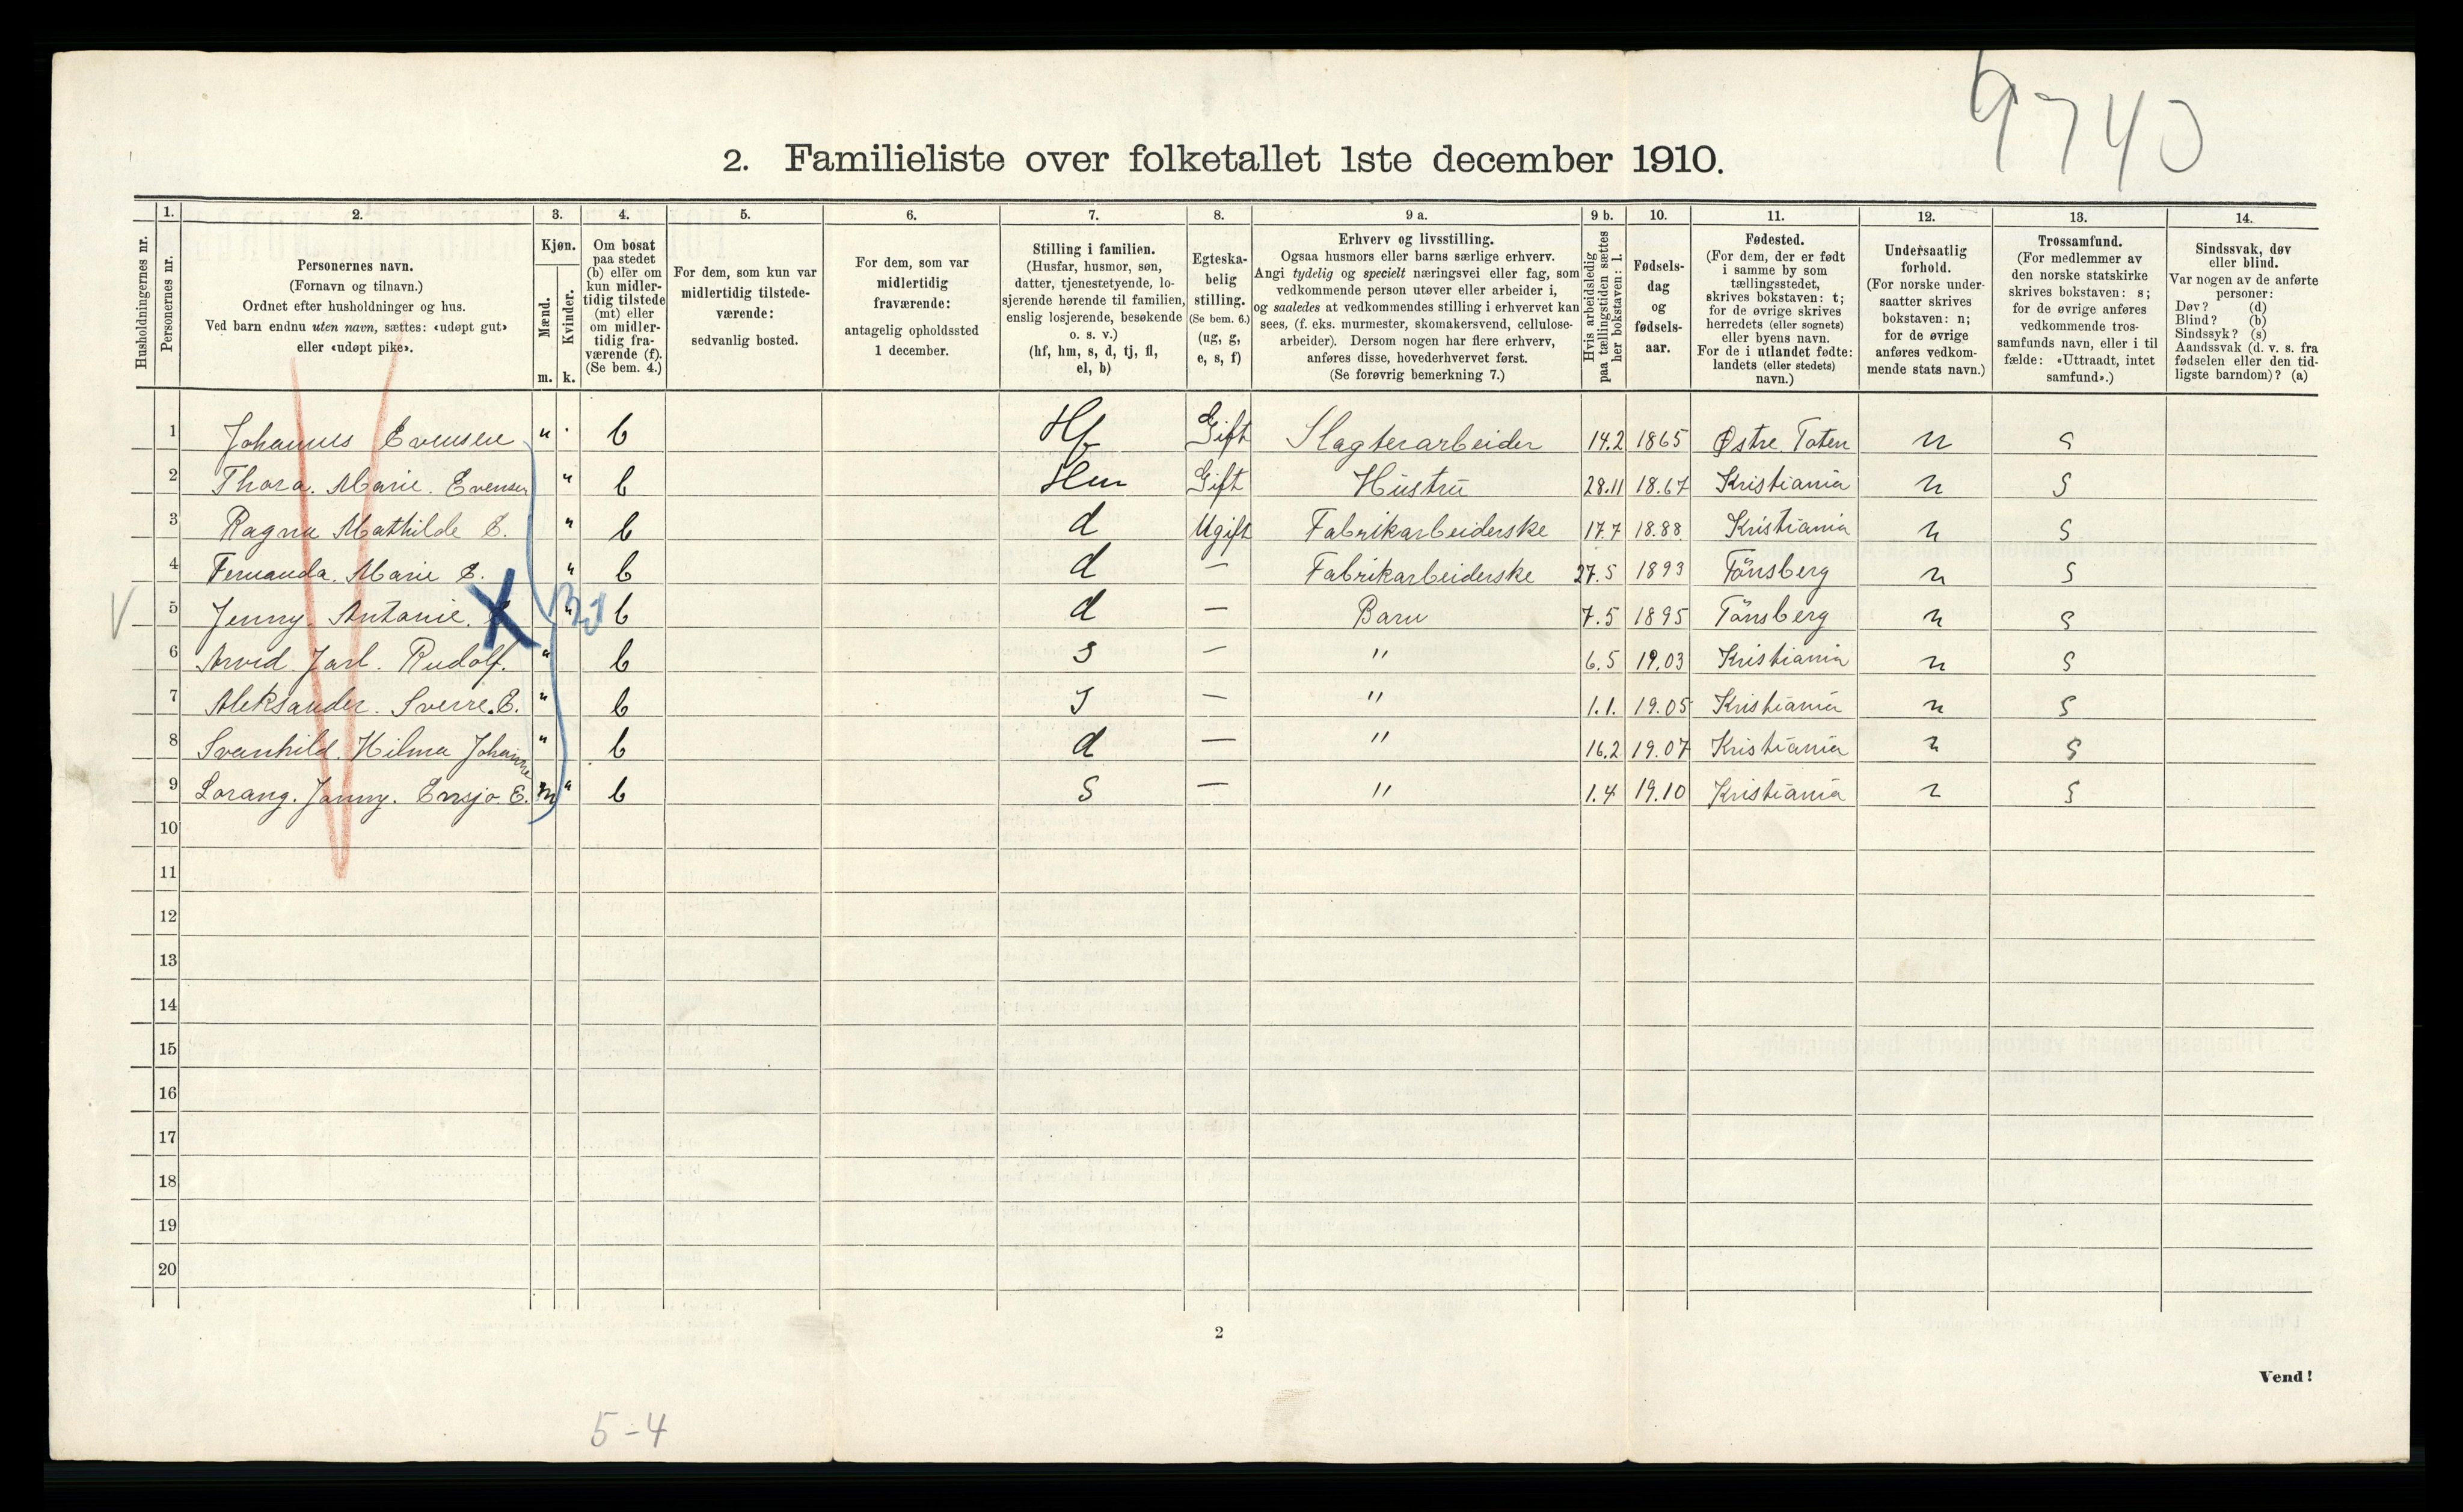 9740
2. Familieliste over folketallet 1ste december 1910.
Husholdningernes nr.
1.
Personernes nr.
2.
Personernes navn.
(Fornavn og tilnavn.)
Ordnet efter husholdninger og hus.
Ved barn endnu uten navn, sættes: «udøpt gut»
eller «udøpt pike».
3.
Kjøn.
Mænd.
Kvinder.
m. k.
4.
Om bosat
paa stedet
(b) eller om
kun midler-
tidig tilstede
(mt) eller
om midler-
tidig fra-
værende (f).
(Se bem. 4.)
5.
For dem, som kun var
midlertidig tilstede-
værende:
sedvanlig bosted.
6.
For dem, som var
midlertidig
fraværende:
antagelig opholdssted
1 december.
7.
Stilling i familien.
(Husfar, husmor, søn,
datter, tjenestetyende, lo-
sjerende hørende til familien,
enslig losjerende, besøkende
o. s. v.)
(hf, hm, s, d, tj, fl,
el, b)
8.
Egteska-
belig
stilling.
(Se bem. 6.)
(ug, g,
e, s, f)
9 a.
Erhverv og livsstilling.
Ogsaa husmors eller barns særlige erhverv.
Angi tydelig og specielt næringsvei eller fag, som
vedkommende person utøver eller arbeider i,
og saaledes at vedkommendes stilling i erhvervet kan
sees, (f. eks. murmester, skomakersvend, cellulose-
arbeider). Dersom nogen har flere erhverv,
anføres disse, hovederhvervet først.
(Se forøvrig bemerkning 7.)
9 b.
Hvis arbeidsledig
paa tællingstiden sættes
her bokstaven: l.
10.
Fødsels-
dag
og
fødsels-
aar.
11.
Fødested.
(For dem, der er født
i samme by som
tællingsstedet,
skrives bokstaven: t;
for de øvrige skrives
herredets (eller sognets)
eller byens navn.
For de i utlandet fødte:
landets (eller stedets)
navn.)
12.
Undersaatlig
forhold.
(For norske under-
saatter skrives
bokstaven: n;
for de øvrige
anføres vedkom-
mende stats navn.)
13.
Trossamfund.
(For medlemmer av
den norske statskirke
skrives bokstaven: s;
for de øvrige anføres
vedkommende tros-
samfunds navn, eller i til
fælde: «Uttraadt, intet
samfund».)
14.
Sindssvak, døv
eller blind.
Var nogen av de anførte
personer:
Døv? (d)
Blind? (b)
Sindssyk? (s)
Aandssvak (d. v. s. fra
fødselen eller den tid-
ligste barndom)? (a)
1 Johannes Evensen " b Hf Gift Slagterarbeider 14.2 1865 Østre Toten n s
2 Thora. Marie. Evensen " b Hm Gift Hustru 28.11 18.67 Kristiania n s
3 Ragna Mathilde E. " b d Ugift Fabrikarbeiderske 17.7 18.88 Kristiania n s
4 Fernanda. Marie E. " b d — Fabrikarbeiderske 27.5 1893 Tönsberg n s
5 Jenny. Antonie. " b d — Barn 7.5 1895 Tönsberg n s
6 Arvid Jarl. Rudolf. " b s — " 6.5 19.03 Kristiania n s
7 Aleksander. Sverre. E. " b s — " 1.1. 19.05 Kristiania n s
8 Svanhild. Hilma Johanne " b d — " 16.2 19.07 Kristiania n s
9 Lorang. Jonny. Ensjo E. m " b s — " 1.4 19.10 Kristiania n s
10
11
12
13
14
15
16
17
18
19
20
2
Vend!
5-4